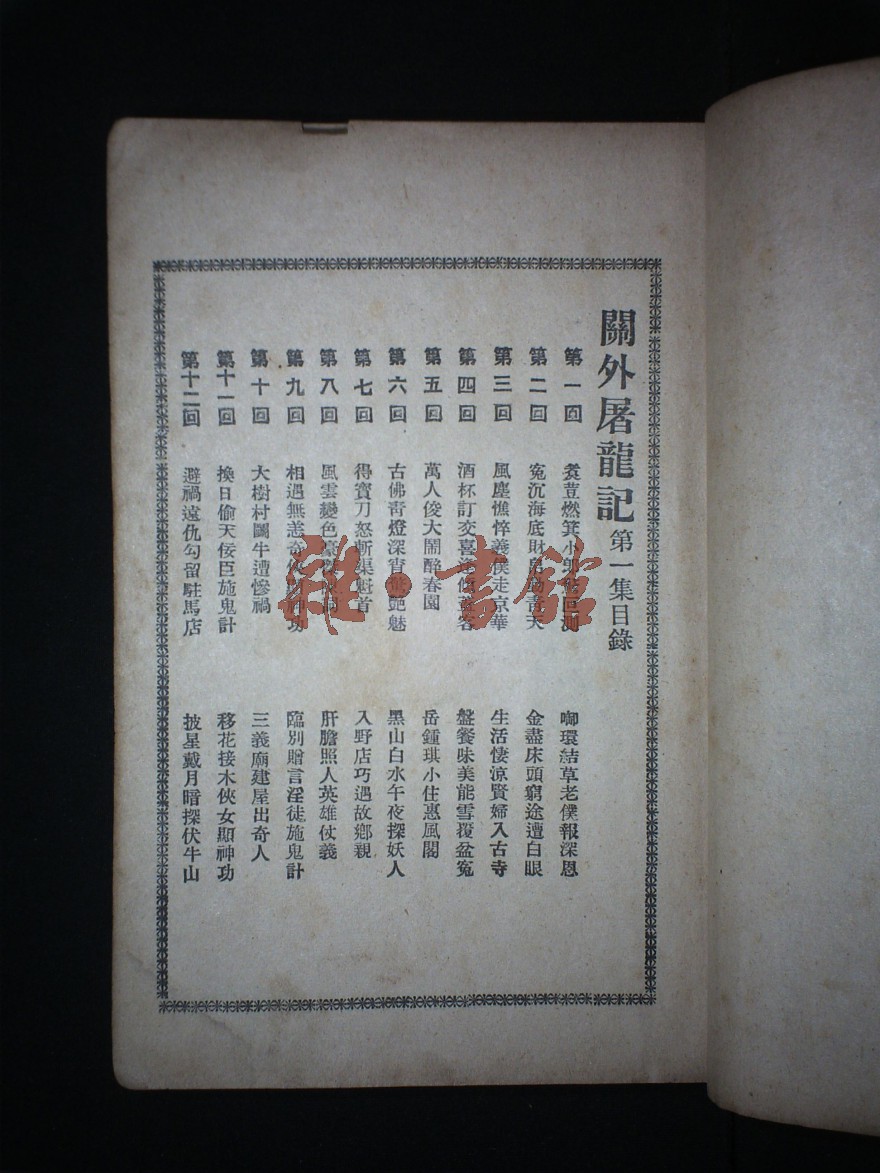 關外屠龍記 第一集目錄
第一回 煑荳燃箕小 測 啣環結草老僕報深恩
第二回 寃沉海底財 天 金盡床頭窮途遭白眼
第三回 風塵憔悴義僕走京華 生活悽凉賢婦入古寺
第四回 酒杯訂交喜 客 盤餐味美能雪覆盆寃
第五回 萬人俊大鬧醉春園 岳鍾琪小住惠風閣
第六回 古佛靑燈深宵 艷魅 黑山白水午夜探妖人
第七回 得寶刀怒斬渠魁首 入野店巧遇故鄉親
第八回 風雲變色 肝膽照人英雄仗義
第九回 相遇無恙奇 神功 臨別贈言淫徒施鬼計
第十回 大樹村鬭牛遭慘禍 三義廟建屋出奇人
第十一回 換日偷天佞臣施鬼計 移花接木俠女顯神功
第十二回 避禍遠仇勾留駐馬店 披星戴月暗探伏牛山
雜·書館